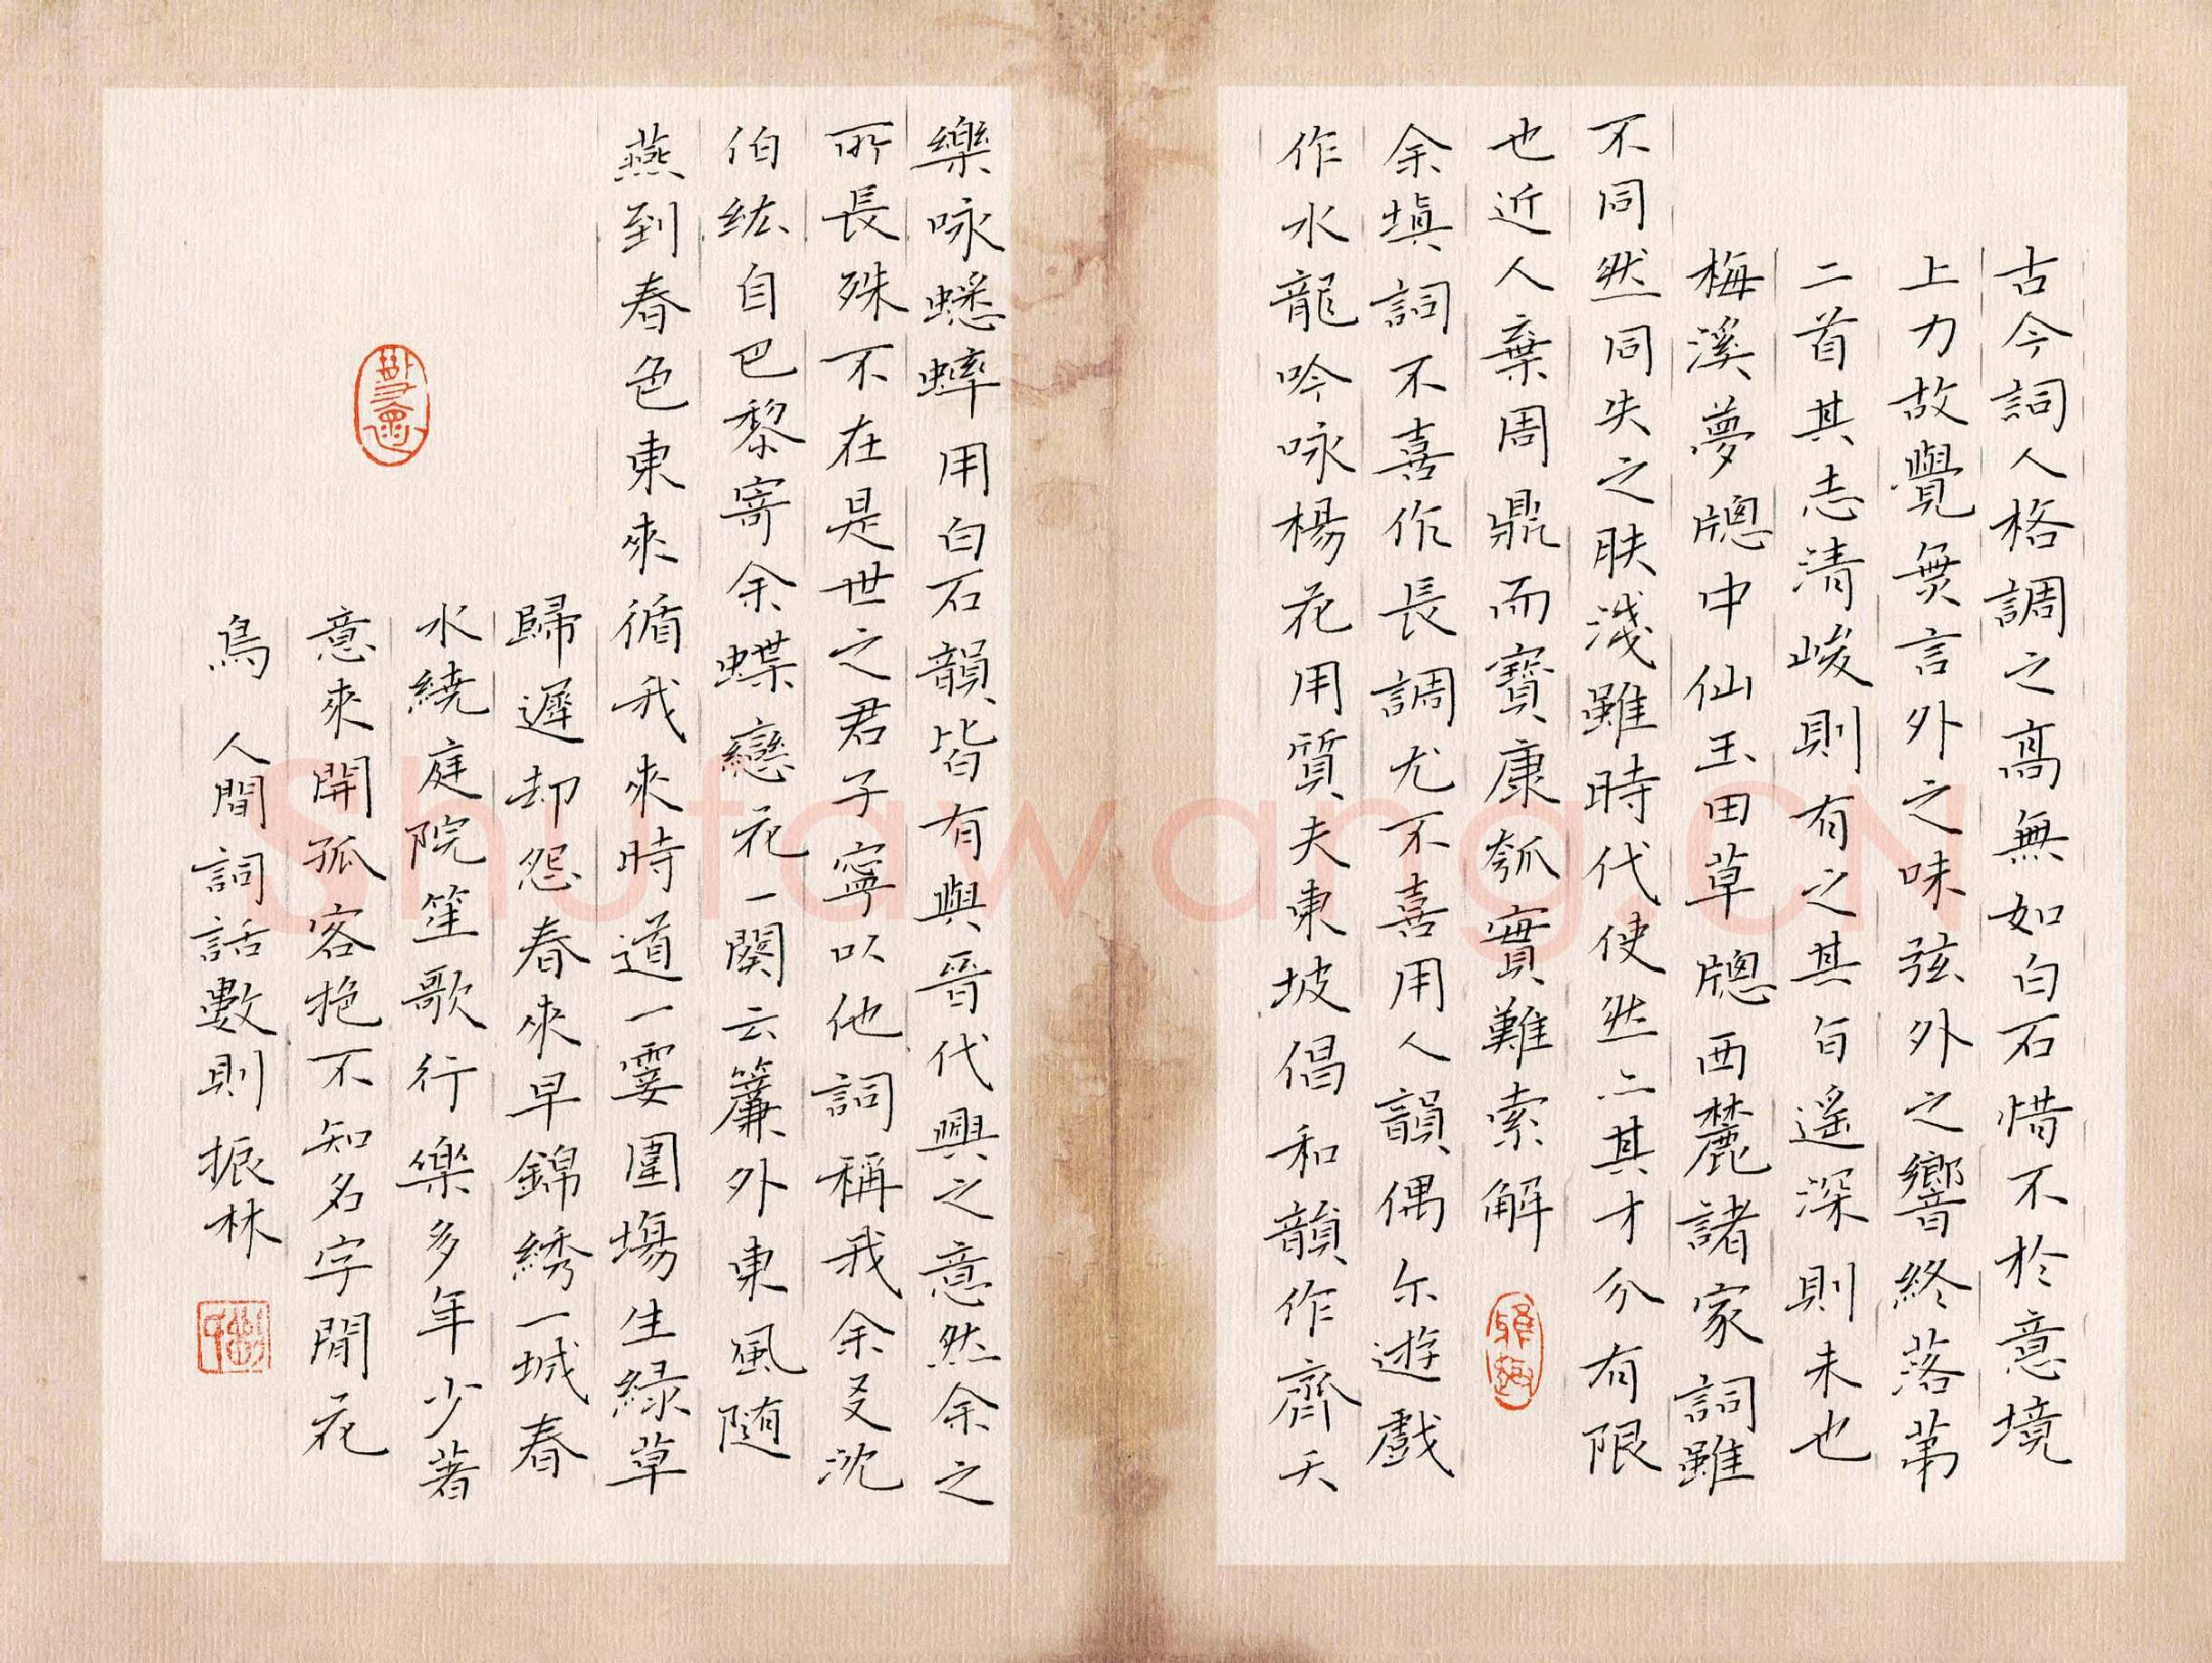 古今詞人格調之高無如白石惜不於意境
上力故覺無言外之味弦外之響終落第
二首其志清峻則有之其旨遙深則未也
梅溪夢牕中仙玉田草牕西麓諸家詞雖
不同然同失之膚淺雖時代使然亦其才分有限
也近人棄周鼎而寶康瓠實難索解
余填詞不喜作長調尤不喜用人韻偶尔遊戲
作水龍吟咏楊花用質夫東坡倡和韻作齊天
樂咏蟋蟀用白石韻皆有與晉代興之意然余之
所長殊不在是世之君子寧以他詞稱我余友沈
伯紘自巴黎寄余蝶戀花一闋云簾外東風随
燕到春色東來循我來時道一霎圍場生緑草
歸遲却怨春來早錦綉一城春
水繞庭院笙歌行樂多年少著
意來開孤客抱不知名字閒花
鳥 人間詞話數則振林
Shufawang.CN